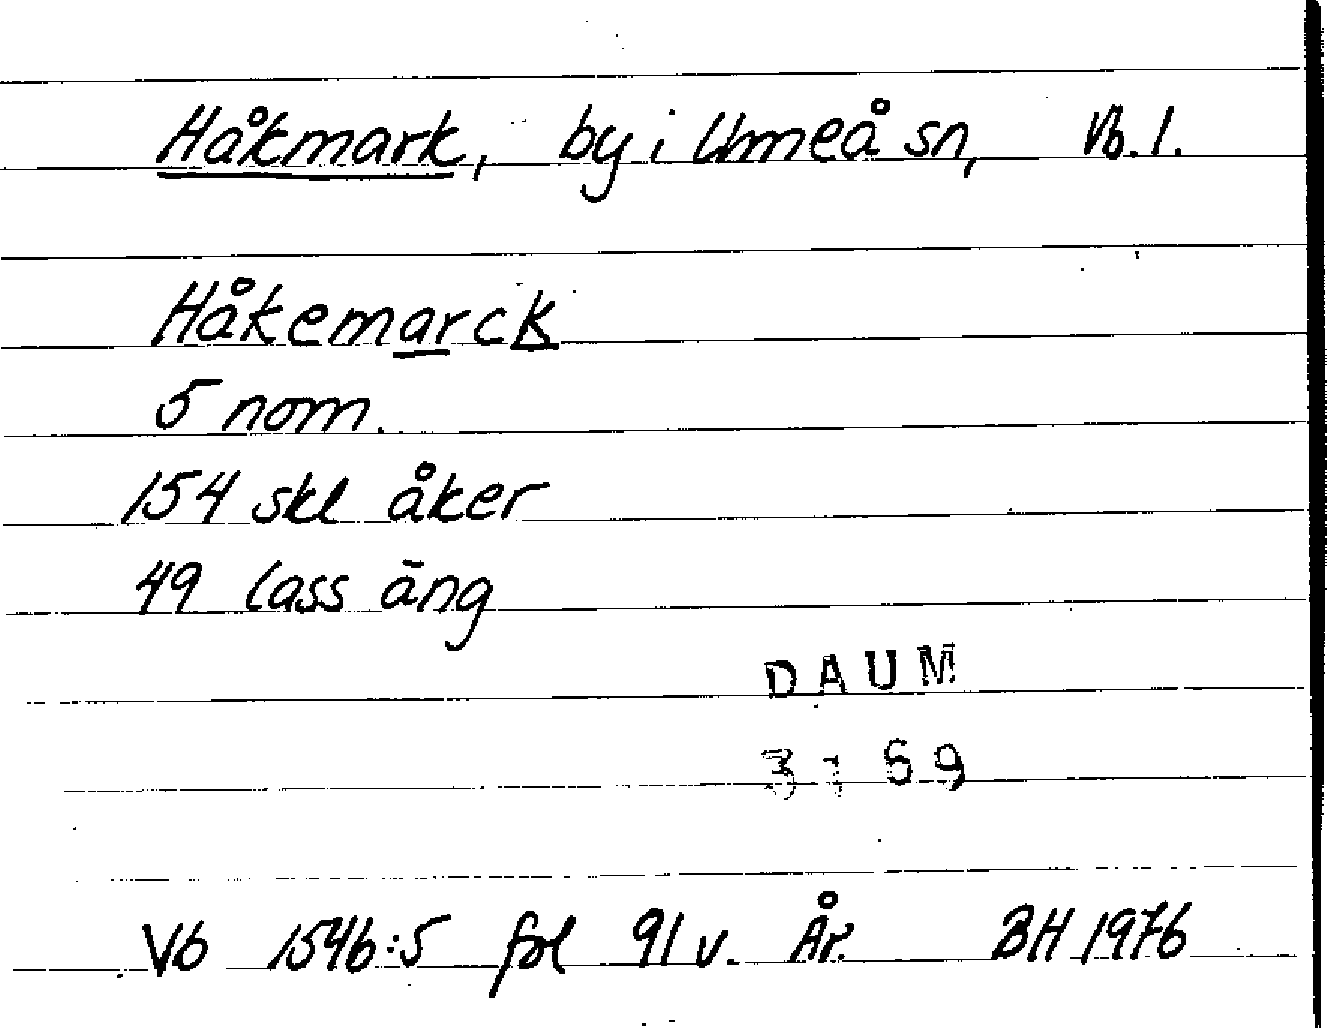 Håkmark, by i Umeå sn, Vb. l.
Håkemarck
5 nom.
154 skl åker
49 lass äng
DAUM
3169
Vb 1546:5 fol 91 v. År. BH 1976